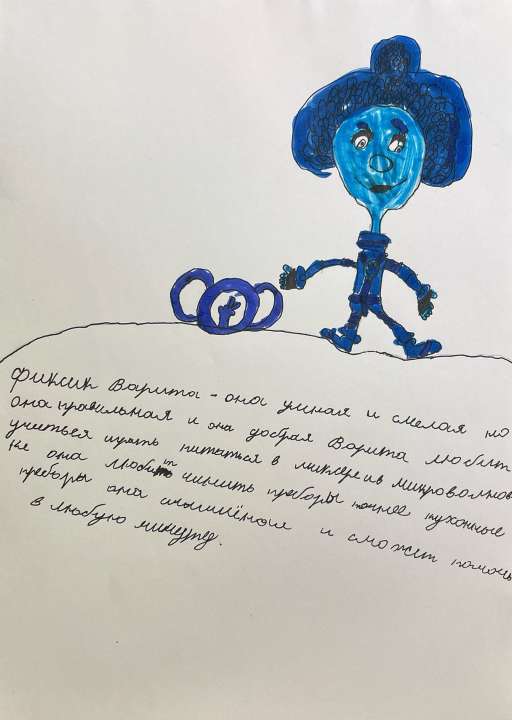 Фиксик Варита - она умная и смелая но
она правильная и она добрая Варита любит
учиться питаться в миксере и в микроволнов
ке она любит чинить приборы кухонные
приборы она смышлёная и сможет помочь
в любую минуту.